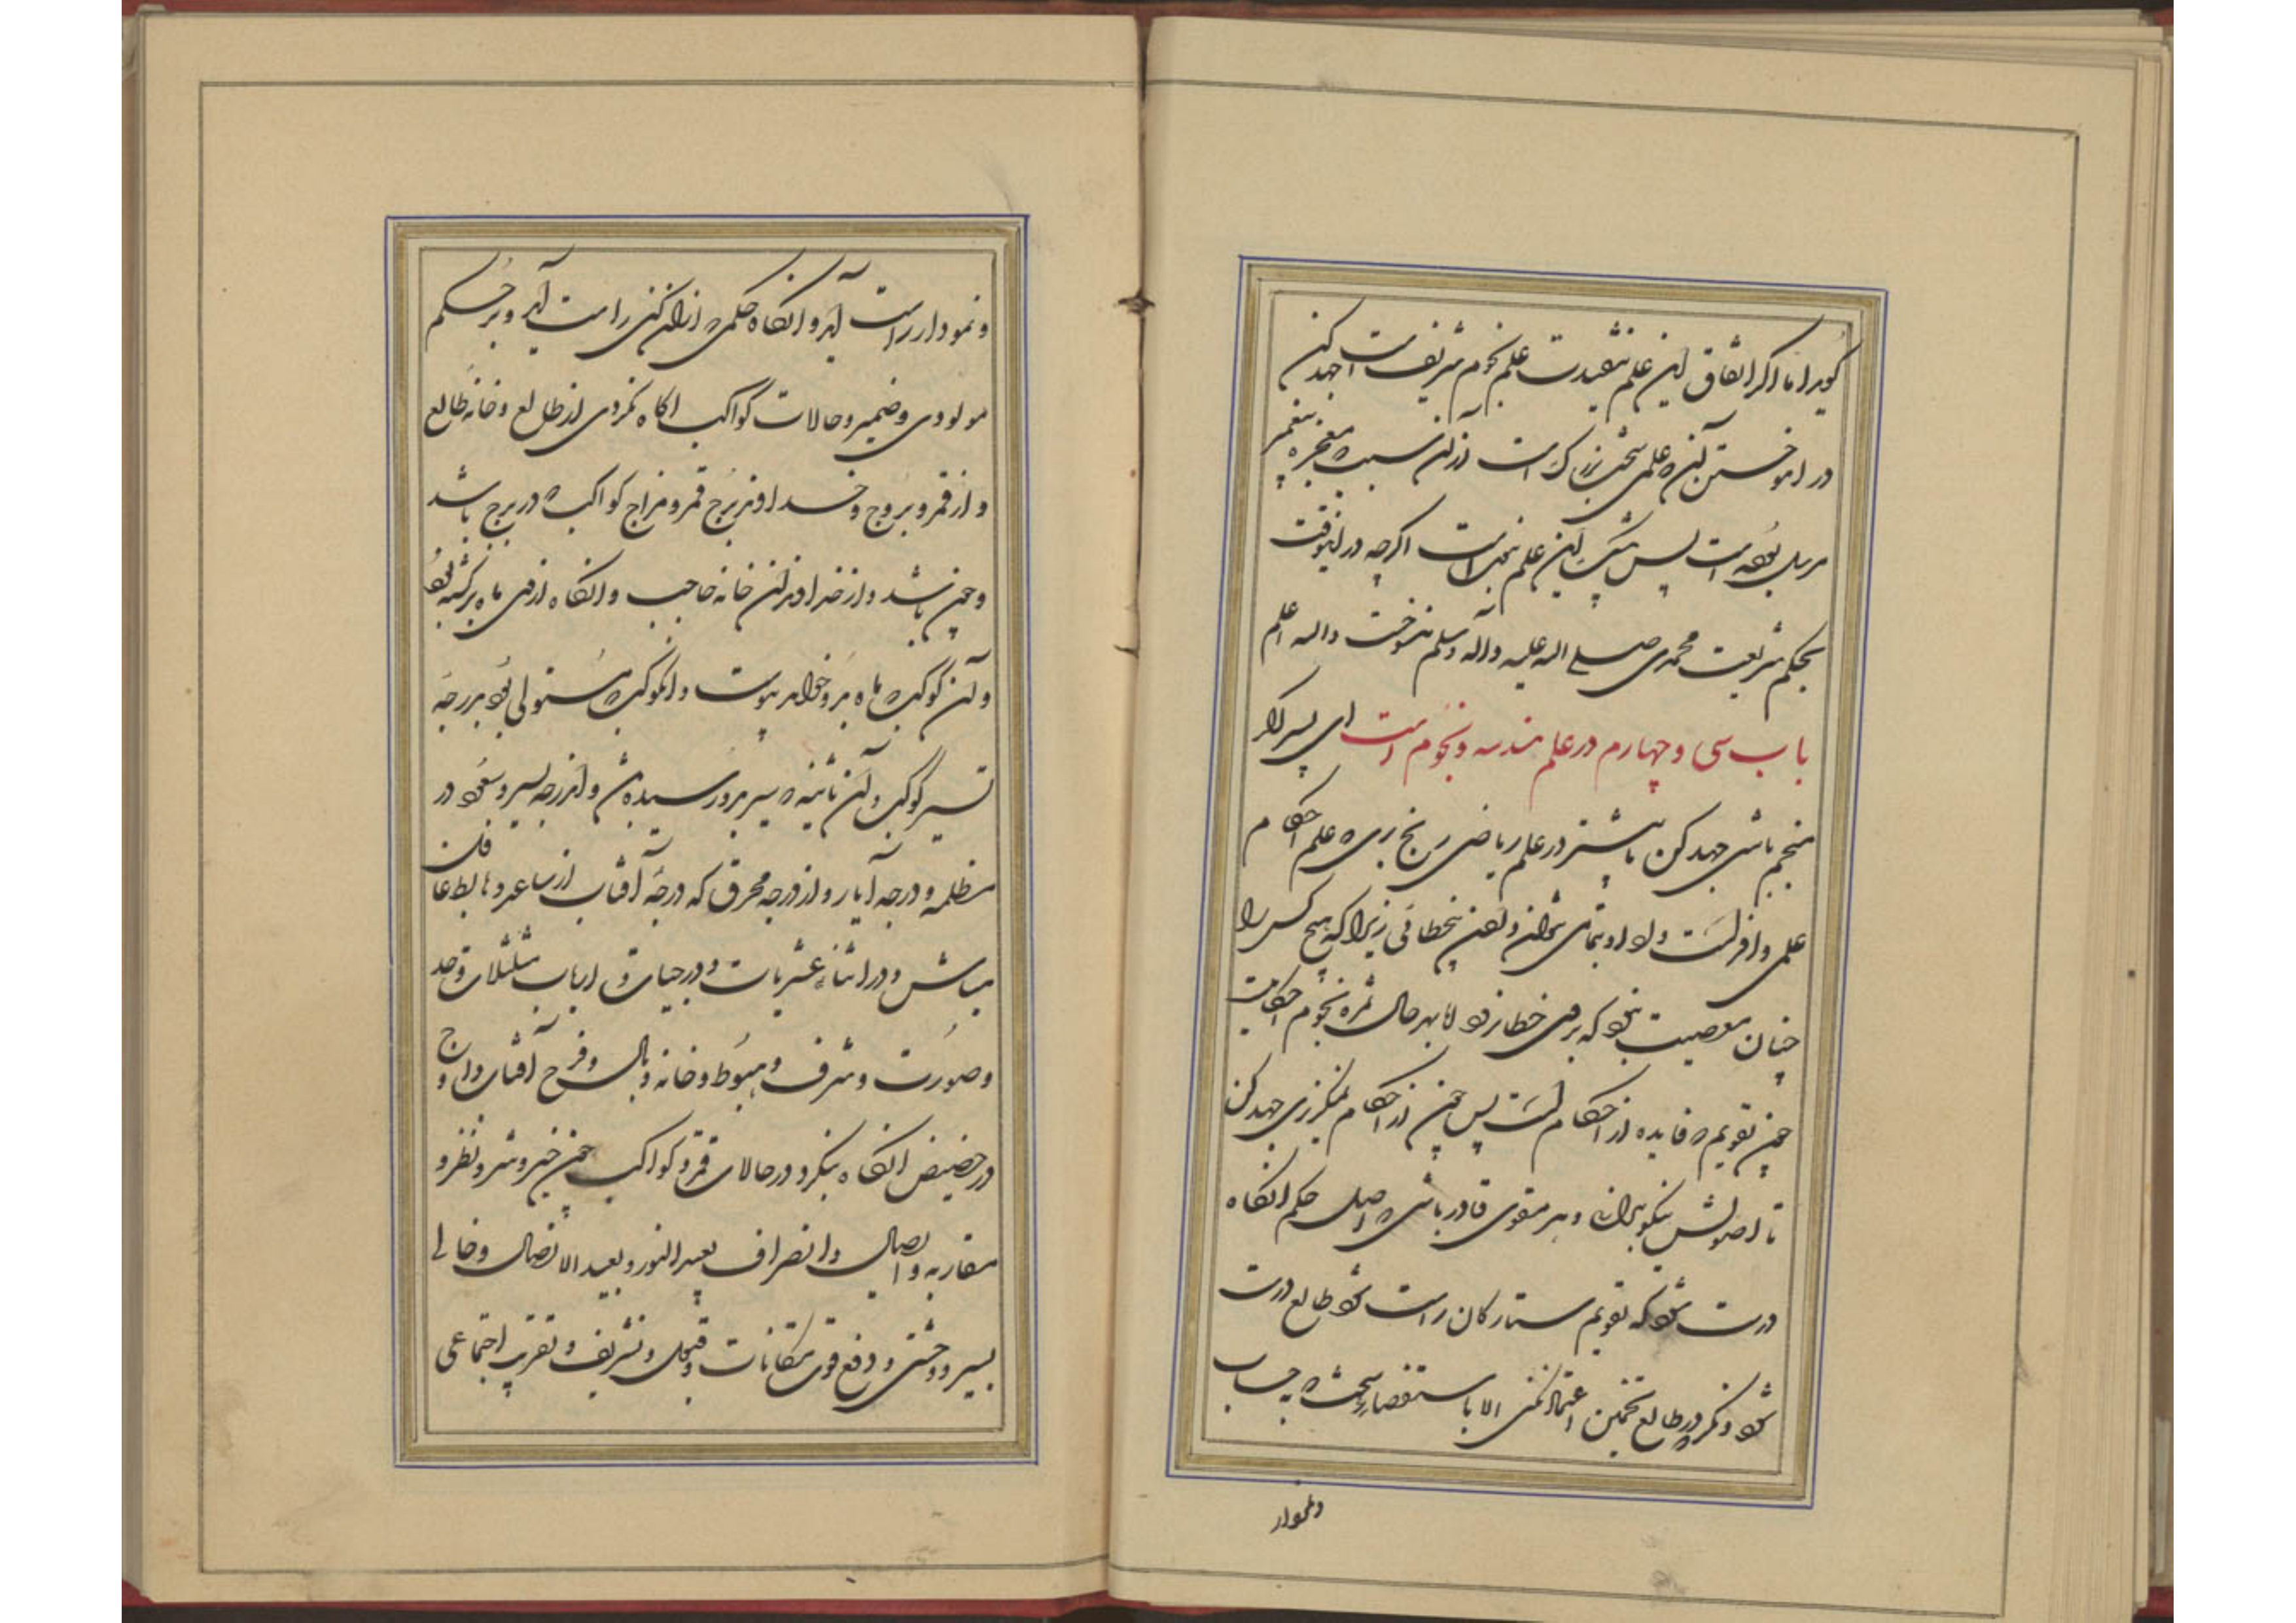 گوید اما اگر اتفاق این علم نیفتد علم نجوم شریفست جهد کن
در آموختن آن که علمی سخت بزرگ است از آن سبب که معجزه پیغمبر
مرسل بوده است پس بیشک این علم نجوم است اگرچه در اینوقت
بحکم شریعت محمدی صلی الله علیه وآله وسلم منسوخست والله اعلم
باب سی و چهارم در علم هندسه و نجوم است ای پسر اگر
منجم باشی جهد کن تا بیشتر در علم ریاضی رنج بری که علم احکام
علمی وافر است و داد او بتمامی نتوان دادن بیخطائی زیرا که هیچ کس را
چنان مصیب نبود که بروی خطا نرود اما بهر حال ثمره نجوم احکامست
چون تقویم که فایده از احکام است پس چون از احکام نگزیری جهد کن
تا اصولش نیکو بدانی و بر مقوی قادر باشی که اصل حکم آنگاه
درست شود که تقویم ستارگان راست شود طالع درست
شود و نگر در طالع تخمین اعتماد نکنی الا باستقصا سخت که حساب
ونمودار
و نمودار راست آید و آنگاه حکمی که از آن کنی راست آید و بر حکم
مولودی و ضمیر و حالات کواکب آگاه نگردی از طالع و خانه طالع
و از قمر و بروج و خداوند برج قمر و مزاج کواکب که در برج باشد
و چون باشد و از خداوند آن خانه صاحب و آنگاه از وی ماه برگشته بود
و آن کوکب که ماه بدو خواهد پیوست و آنکوکب که مستولی بود بر درجه
تسییر کوکب و آن ثابته که سیر بدو رسیده باشد و از درجه سیر و سعود در
مظلمه و درجه آبار و از درجه محرق که درجه آفتاب از ساعد و هابط غافل
مباش و در اثناء عشریات و درجیات و ارباب مثلثات و حد
و صورت و شرف و هبوط و خانه و وبال و فرح آفتاب و اوج
و حضیض آنگاه بنگر در حالات قمر و کواکب چون خیر و شر و نظر و
مقاربه و اتصال و انصراف بعید النور و بعید الاتصال و خالی
بسیر و وحشتی و دفع قوی مکانات و قبول و تشریف و تقریب اجتماعی